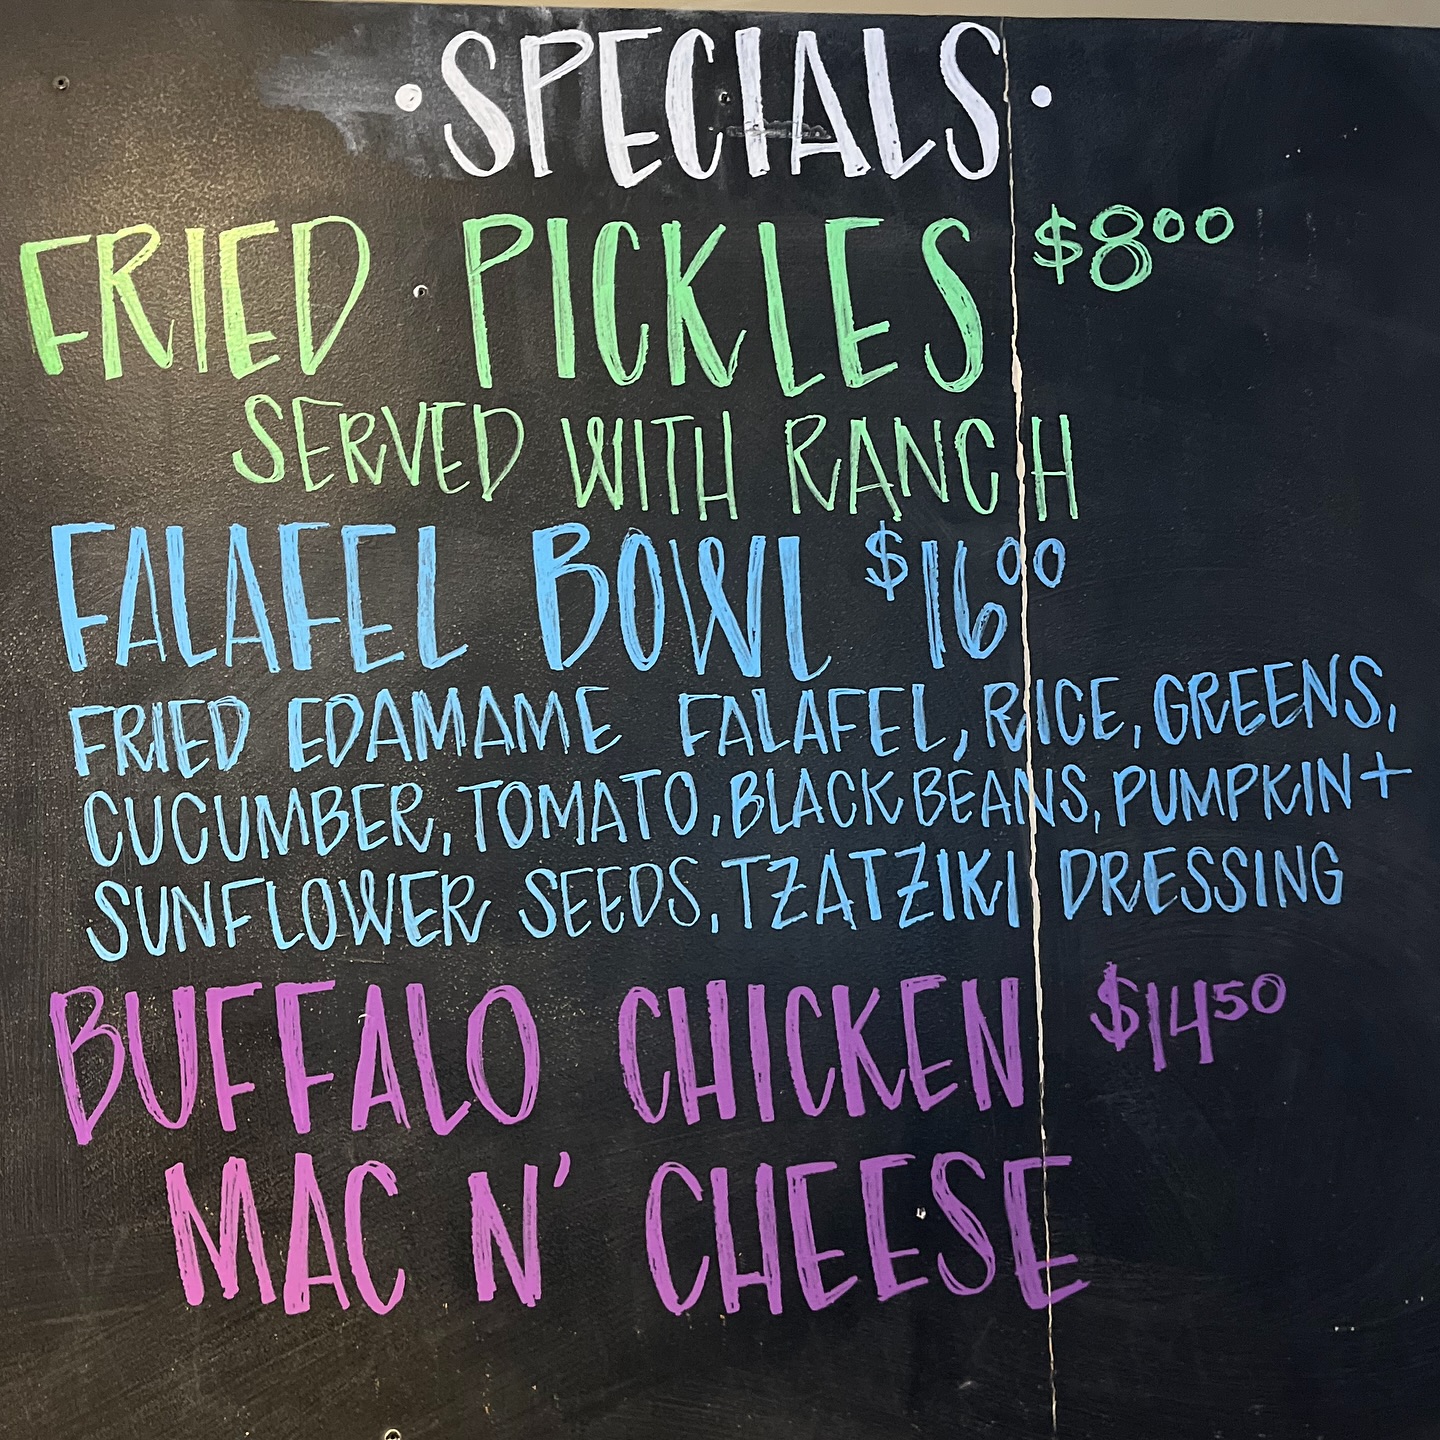 ·SPECIALS·
FRIED PICKLES $8⁰⁰
SERVED WITH RANCH
FALAFEL BOWL $16⁰⁰
FRIED EDAMAME FALAFEL, RICE, GREENS,
CUCUMBER, TOMATO, BLACK BEANS, PUMPKIN +
SUNFLOWER SEEDS, TZATZIKI DRESSING
BUFFALO CHICKEN $14⁵⁰
MAC N' CHEESE